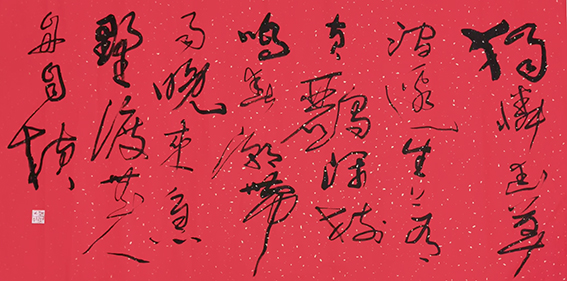 獨憐幽草
澗邊生上
有黃鸝深樹
鳴春潮帶
雨晚來急
野渡無人
舟自橫